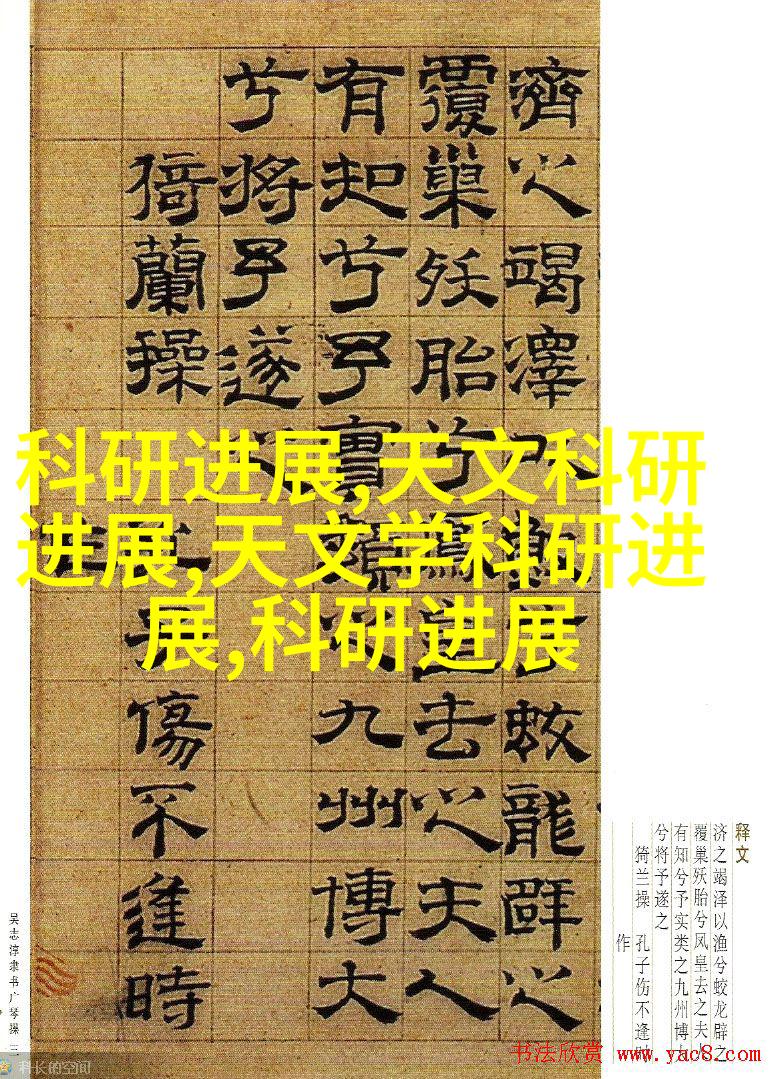 濟之竭澤
蛟龍辟之
覆巢殀胎兮
去之夫人
有知兮予實
九州博大
兮將予遂
猗蘭操
子傷不逢時
科研进展,天文科研
进展,天文学科研进
展,科研进展
释文
济之竭泽以渔兮蛟龙辟之
覆巢殀胎兮凤皇去之夫人
有知兮予实类之九州博大
兮将予遂之
猗兰操 孔子伤不逢时
作
吴志淳隶书广琴操 三
科长的空间
书法欣赏 www.yac8.com